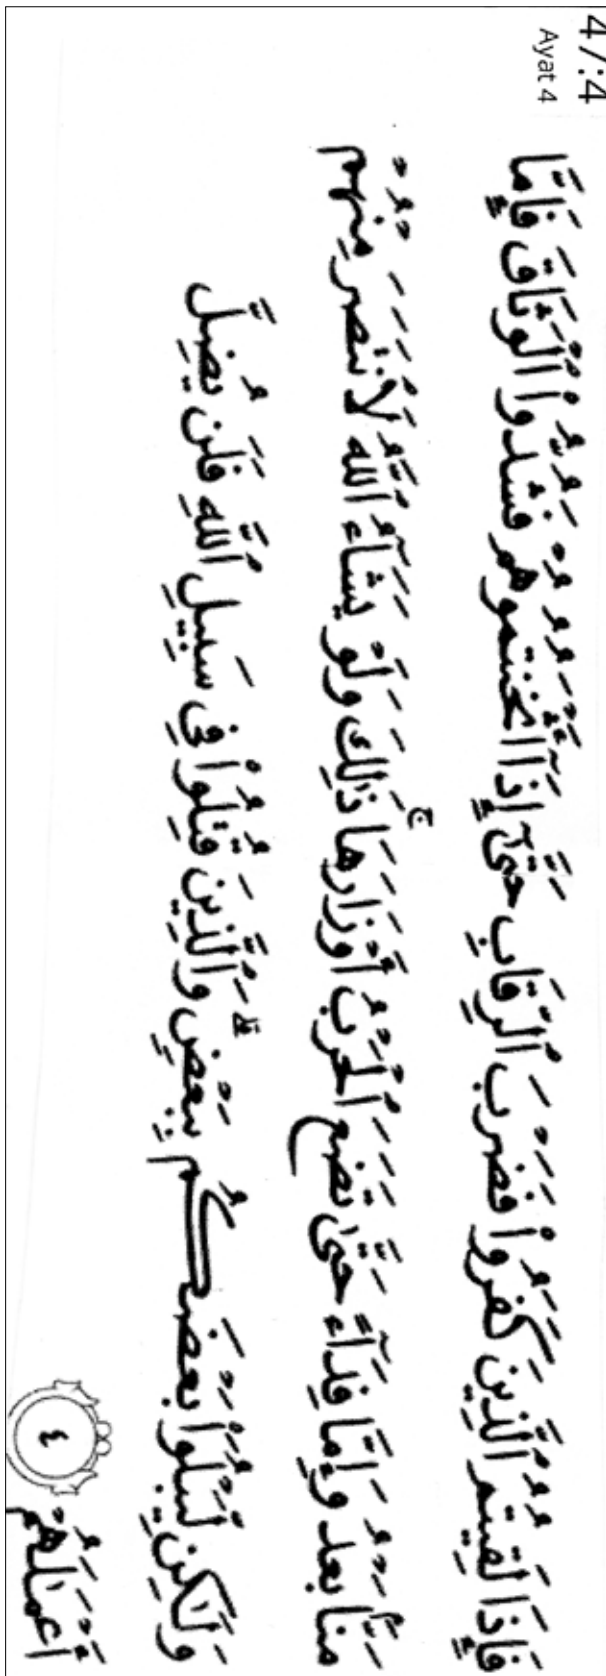 47:4
Ayat 4
فَإِذَا لَقِيتُمُ ٱلَّذِينَ كَفَرُوا۟ فَضَرْبَ ٱلرِّقَابِ حَتَّىٰٓ إِذَآ أَثْخَنتُمُوهُمْ فَشُدُّوا۟ ٱلْوَثَاقَ فَإِمَّا
مَنًّۢا بَعْدُ وَإِمَّا فِدَآءً حَتَّىٰ تَضَعَ ٱلْحَرْبُ أَوْزَارَهَا ۚ ذَٰلِكَ وَلَوْ يَشَآءُ ٱللَّهُ لَٱنتَصَرَ مِنْهُمْ
وَلَٰكِن لِّيَبْلُوَا۟ بَعْضَكُم بِبَعْضٍ ۗ وَٱلَّذِينَ قُتِلُوا۟ فِى سَبِيلِ ٱللَّهِ فَلَن يُضِلَّ
أَعْمَٰلَهُمْ ٤